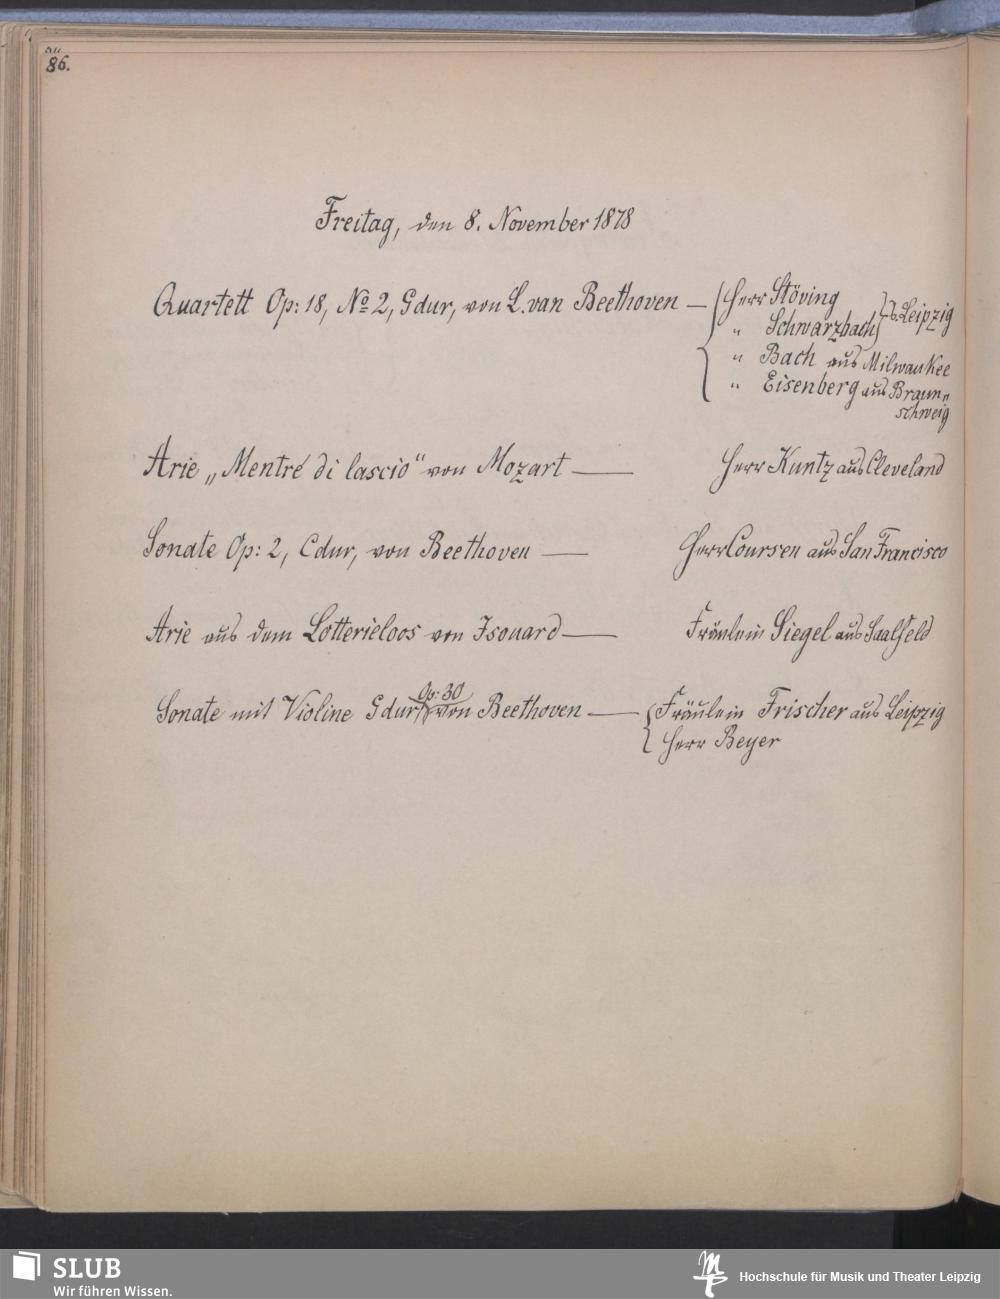 86.
Freitag, den 8. November 1878
Quartett Op: 18, No 2, Gdur, von L. van Beethoven — Herr Stöving
" Schwarzbach a. Leipzig
" Bach aus Milwaukee
" Eisenberg aus Braun„
schweig
Arie „Mentre di lascio“ von Mozart — Herr Kuntz aus Cleveland
Sonate Op: 2, Cdur, von Beethoven — Herr Coursen aus San Francisco
Arie aus dem Lotterieloos von Isouard — Fräulein Siegel aus Saalfeld
Sonate mit Violine Gdur, Op: 30 von Beethoven — Fräulein Frischer aus Leipzig
Herr Beyer
SLUB
Wir führen Wissen.
Hochschule für Musik und Theater Leipzig